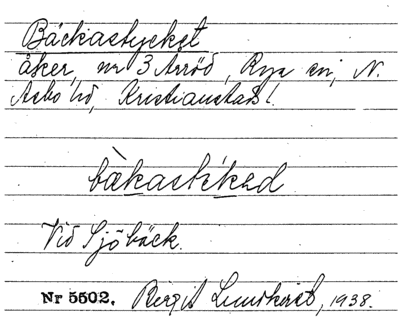 Bäckastycket
åker, nr 3 Arröd, Rya sn, N.
Asbo hd, Kristianstads l.
bàkastíkəd
Vid Sjöbäck.
Nr 5502. Birgit Lundkvist, 1938.